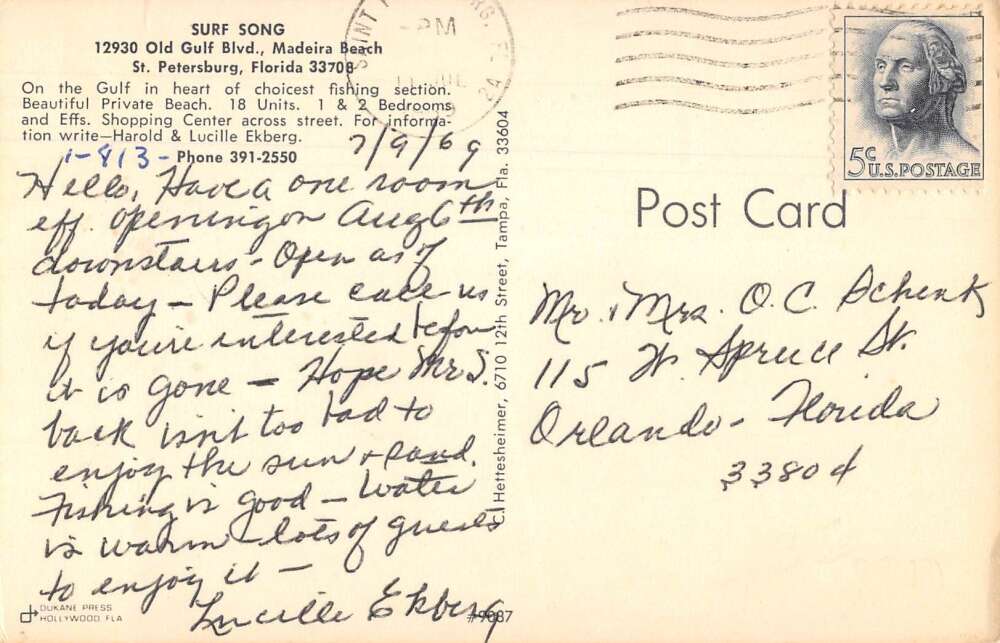 SURF SONG
12930 Old Gulf Blvd., Madeira Beach
St. Petersburg, Florida 33708
On the Gulf in heart of choicest fishing section.
Beautiful Private Beach. 18 Units. 1 & 2 Bedrooms
and Effs. Shopping Center across street. For informa-
tion write—Harold & Lucille Ekberg.
1-813- Phone 391-2550
7/9/69
Hello, Have a one room
eff. opening on Aug 6th
downstairs - Open as of
today — Please call us
if you're interested before
it is gone — Hope Mr S.
back isn't too bad to
enjoy the sun & sand.
Fishing is good — Water
is warm - lots of guests
to enjoy it —
Lucille Ekberg
DUKANE PRESS
HOLLYWOOD FLA
#9087
C. Hettesheimer, 6710 12th Street, Tampa, Fla. 33604
PM
5c U.S. POSTAGE
Post Card
Mr. & Mrs. O. C. Schenk
115 W. Spruce St.
Orlando - Florida
33804